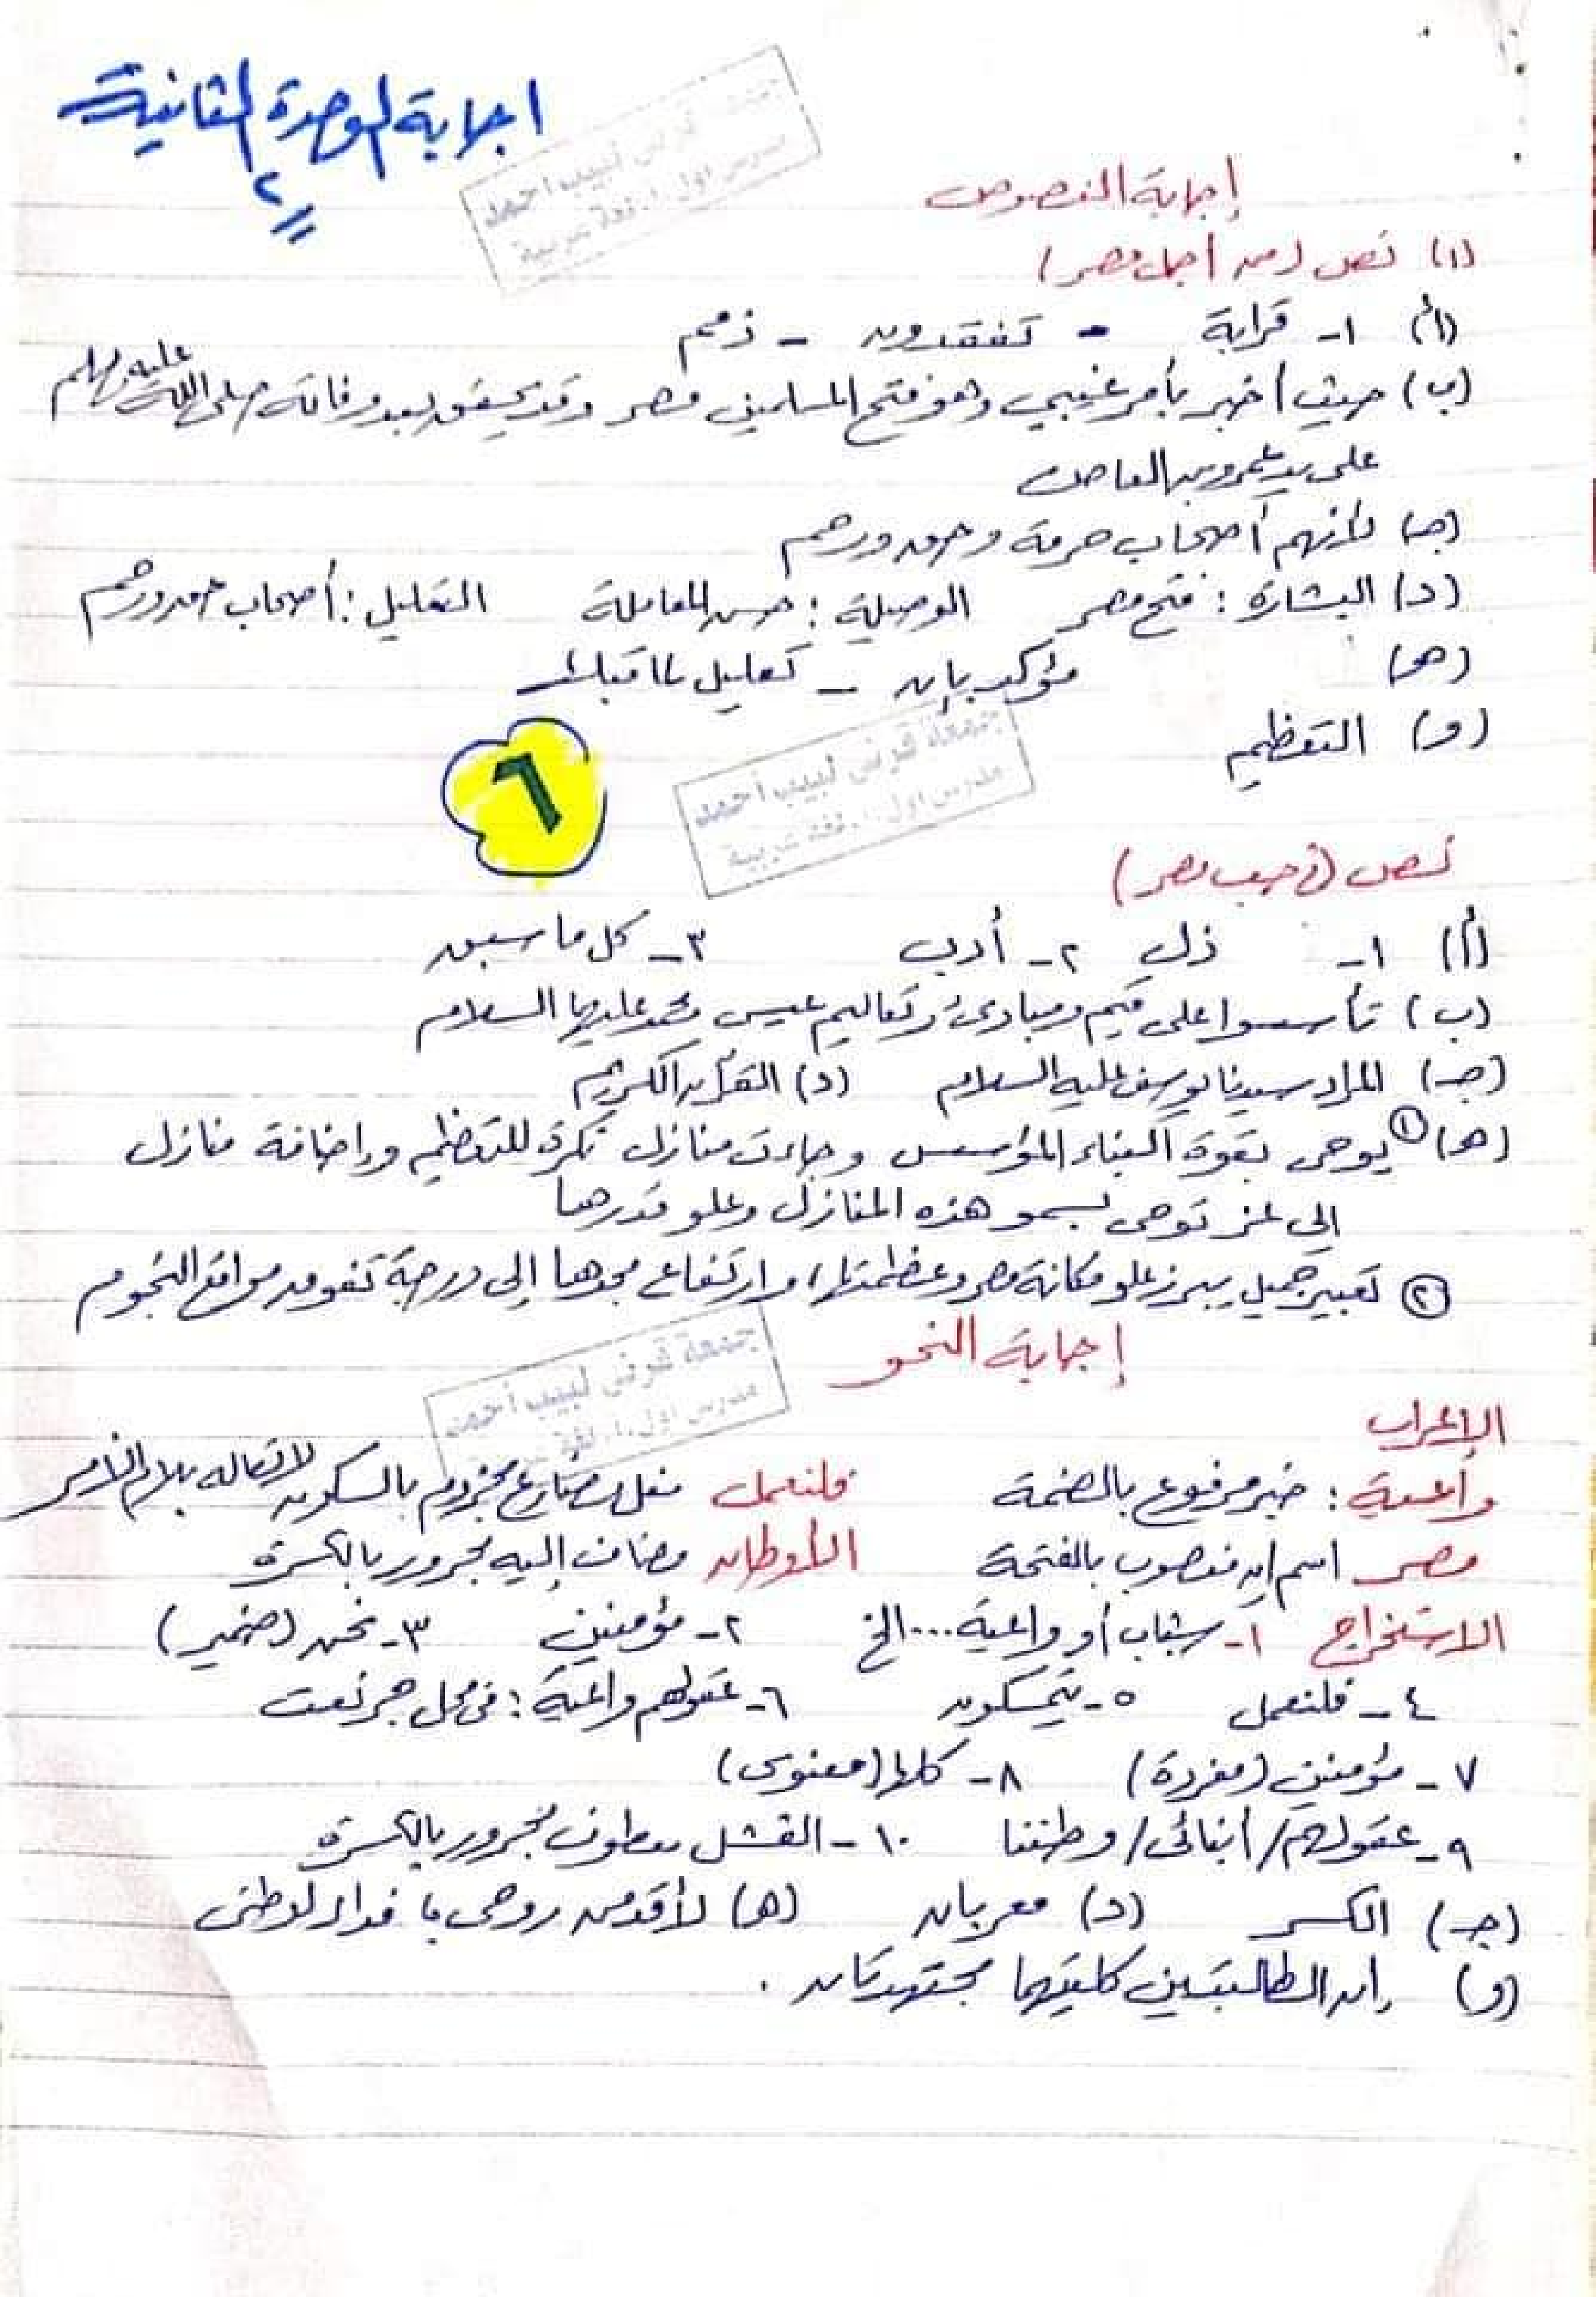 اجابة الوحدة الثانية
٢
إجابة النصوص
(١) نص (من أجل مصر)
(أ) ١- قرابة - تفقدون - ذمم
(ب) حيث أخبر بأمر غيبي وهو فتح المسلمين مصر وقد تحقق بعد وفاته صلى الله عليه وسلم
على يد عمرو بن العاص
(جـ) لأنهم أصحاب حرمة وحق ورحم
(د) البشارة: فتح مصر الوصية: حسن المعاملة التعليل: أصحاب حق ورحم
(هـ) مؤكد بإن - تعليل لما قبلها
(و) التعظيم
٦
نص (في حب مصر)
(أ) ١- ذل ٢- أدب ٣- كل ما سبق
(ب) تأسسوا على قيم ومبادئ وتعاليم عيسى ومحمد عليهما السلام
(جـ) المراد سيدنا يوسف عليه السلام (د) القرآن الكريم
(هـ) ① يوحى بقوة البناء المؤسس وجاءت منازل نكرة للتعظيم وإضافة منازل
إلى عز توحى بسمو هذه المنازل وعلو قدرها
② تعبير جميل يبرز علو مكانة مصر وعظمتها، وارتفاع مجدها إلى درجة تفوق مواقع النجوم
إجابة النحو
الإعراب
واعية: خبر مرفوع بالضمة فلنعمل فعل مضارع مجزوم بالسكون لاتصاله بلام الأمر
مصر اسم إن منصوب بالفتحة الأوطان مضاف إليه مجرور بالكسرة
الاستخراج ١- شباب أو واعية ... الخ ٢- مؤمنين ٣- نحن (ضمير)
٤- فلنعمل ٥- يتمسكون ٦- عقولهم واعية: فى محل جر نعت
٧- مؤمنين (مفردة) ٨- كلها (معنوى)
٩- عقولهم/ أبنائى/ وطننا ١٠- الفشل معطوف مجرور بالكسرة
(جـ) الكسر (د) معربان (هـ) لأقدمن روحى فداء لوطنى
(و) إن الطالبتين كلتيهما مجتهدتان .
جمعة قرنى لبيب أحمد
مدرس أول أ. لغة عربية